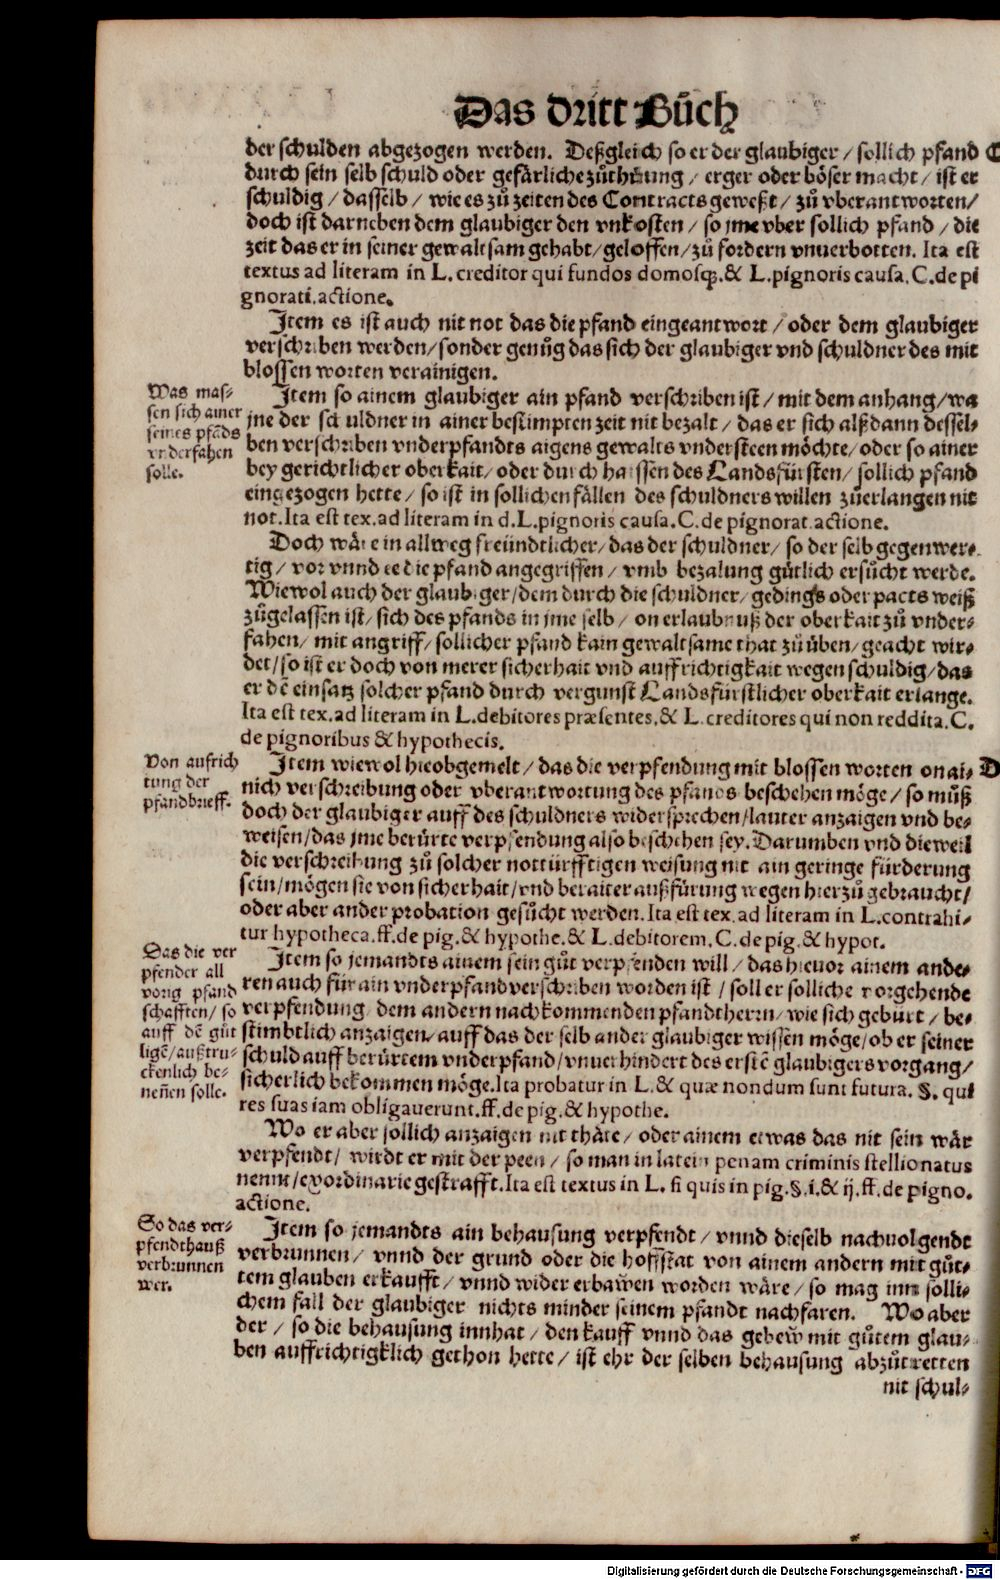 Das dritt Bůch
der schulden abgezogen werden. Deßgleich so er der glaubiger / sollich pfand
durch sein selb schuld oder gefärliche zůthůung / erger oder böser macht / ist er
schuldig / dasselb / wie es zů zeiten des Contracts geweßt / zů vberantworten /
doch ist darneben dem glaubiger den vnkosten / so jme vber sollich pfand / die
zeit das er in seiner gewaltsam gehabt / geloffen / zů fordern vnuerbotten. Ita est
textus ad literam in L. creditor qui fundos domosqꝫ. & L. pignoris causa. C. de pi
gnorati. actione.
Item es ist auch nit not das die pfand eingeantwort / oder dem glaubiger
verschriben werden / sonder genůg das sich der glaubiger vnd schuldner des mit
blossen worten verainigen.
Was mas⸗
sen sich ainer
seines pfāds
vnderfahen
solle.
Item so ainem glaubiger ain pfand verschriben ist / mit dem anhang / wa
jne der schuldner in ainer bestimpten zeit nit bezalt / das er sich alßdann dessel⸗
ben verschriben vnderpfandts aigens gewalts vndersteen möchte / oder so ainer
bey gerichtlicher oberkait / oder durch haissen des Landsfürsten / sollich pfand
eingezogen hette / so ist in sollichen fällen des schuldners willen zůerlangen nit
not. Ita est tex. ad literam in d. L. pignoris causa. C. de pignorat. actione.
Doch wäre in allweg freündtlicher / das der schuldner / so der selb gegenwer⸗
tig / vor vnnd ee die pfand angegriffen / vmb bezalung gůtlich ersůcht werde.
Wiewol auch der glaubiger / dem durch die schuldner / gedings oder pacts weiß
zůgelassen ist / sich des pfands in jme selb / on erlaubnuß der oberkait zů vnder⸗
fahen / mit angriff / sollicher pfand kain gewaltsame that zů üben / geacht wir⸗
det / so ist er doch von merer sicherhait vnd auffrichtigkait wegen schuldig / das
er dē einsatz solcher pfand durch vergunst Landsfürstlicher oberkait erlange.
Ita est tex. ad literam in L. debitores præsentes. & L. creditores qui non reddita. C.
de pignoribus & hypothecis.
Von aufrich
tung der
pfandbrieff.
Item wiewol hieobgemelt / das die verpfendung mit blossen worten on ai⸗
nich verschreibung oder vberantwortung des pfands beschehen möge / so můß
doch der glaubiger auff des schuldners widersprechen / lauter anzaigen vnd be⸗
weisen / das jme berürte verpfendung also beschehen sey. Darumben vnd dieweil
die verschreibung zů solcher notturfftigen weisung nit ain geringe fürderung
sein / mögen sie von sicherhait / vnd beraiter außfürung wegen hierzů gebraucht /
oder aber ander probation gesůcht werden. Ita est tex. ad literam in L. contrahi⸗
tur hypotheca. ff. de pig. & hypothe. & L. debitorem. C. de pig. & hypot.
Das die ver
pfender all
vorig pfand
schafften / so
auff dē gůt
ligē / außtru⸗
ckenlich be⸗
neñen solle.
Item so jemandts ainem sein gůt verpfenden will / das hieuor ainem ande⸗
ren auch für ain vnderpfand verschriben worden ist / soll er solliche vorgehende
verpfendung dem andern nachkommenden pfandtherrn / wie sich gebürt / be⸗
stimbtlich anzaigen / auff das der selb ander glaubiger wissen möge / ob er seiner
schuld auff berürtem vnderpfand / vnuerhindert des erstē glaubigers vorgang /
sicherlich bekommen möge. Ita probatur in L. & quæ nondum sunt futura. §. qui
res suas iam obligauerunt. ff. de pig. & hypothe.
Wo er aber sollich anzaigen nit thäte / oder ainem etwas das nit sein wär
verpfendt / wirdt er mit der peen / so man in latein penam criminis stellionatus
nennt / exordinarie gestrafft. Ita est textus in L. si quis in pig. §. i. & ij. ff. de pigno.
actione.
So das ver⸗
pfendt hauß
verbrunnen
wer.
Item so jemandts ain behausung verpfendt / vnnd dieselb nachuolgendt
verbrunnen / vnnd der grund oder die hoffstat von ainem andern mit gůt⸗
tem glauben erkaufft / vnnd wider erbawen worden wäre / so mag inn solli⸗
chem fall der glaubiger nichts minder seinem pfandt nachfaren. Wo aber
der / so die behausung innhat / den kauff vnnd das gebew mit gůtem glau⸗
ben auffrichtigklich gethon hette / ist ehr der selben behausung abzůtretten
nit schul⸗
Digitalisierung gefördert durch die Deutsche Forschungsgemeinschaft - DFG